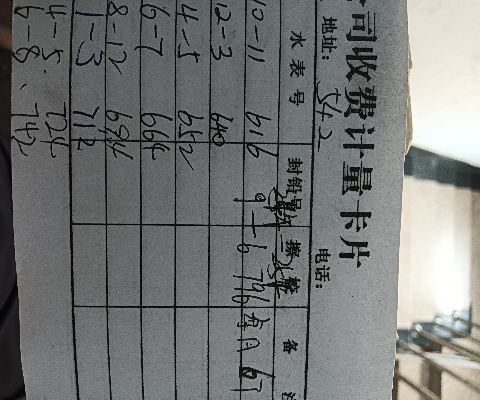 司收费计量卡片
地址: 542 电话:
水表号 封铅号 换 备
10-11 616
12-3 640
4-5 652
6-7 664
8-12 684
1-3 712
4-5. 724
6-8、 742
9-6 796 每月 67